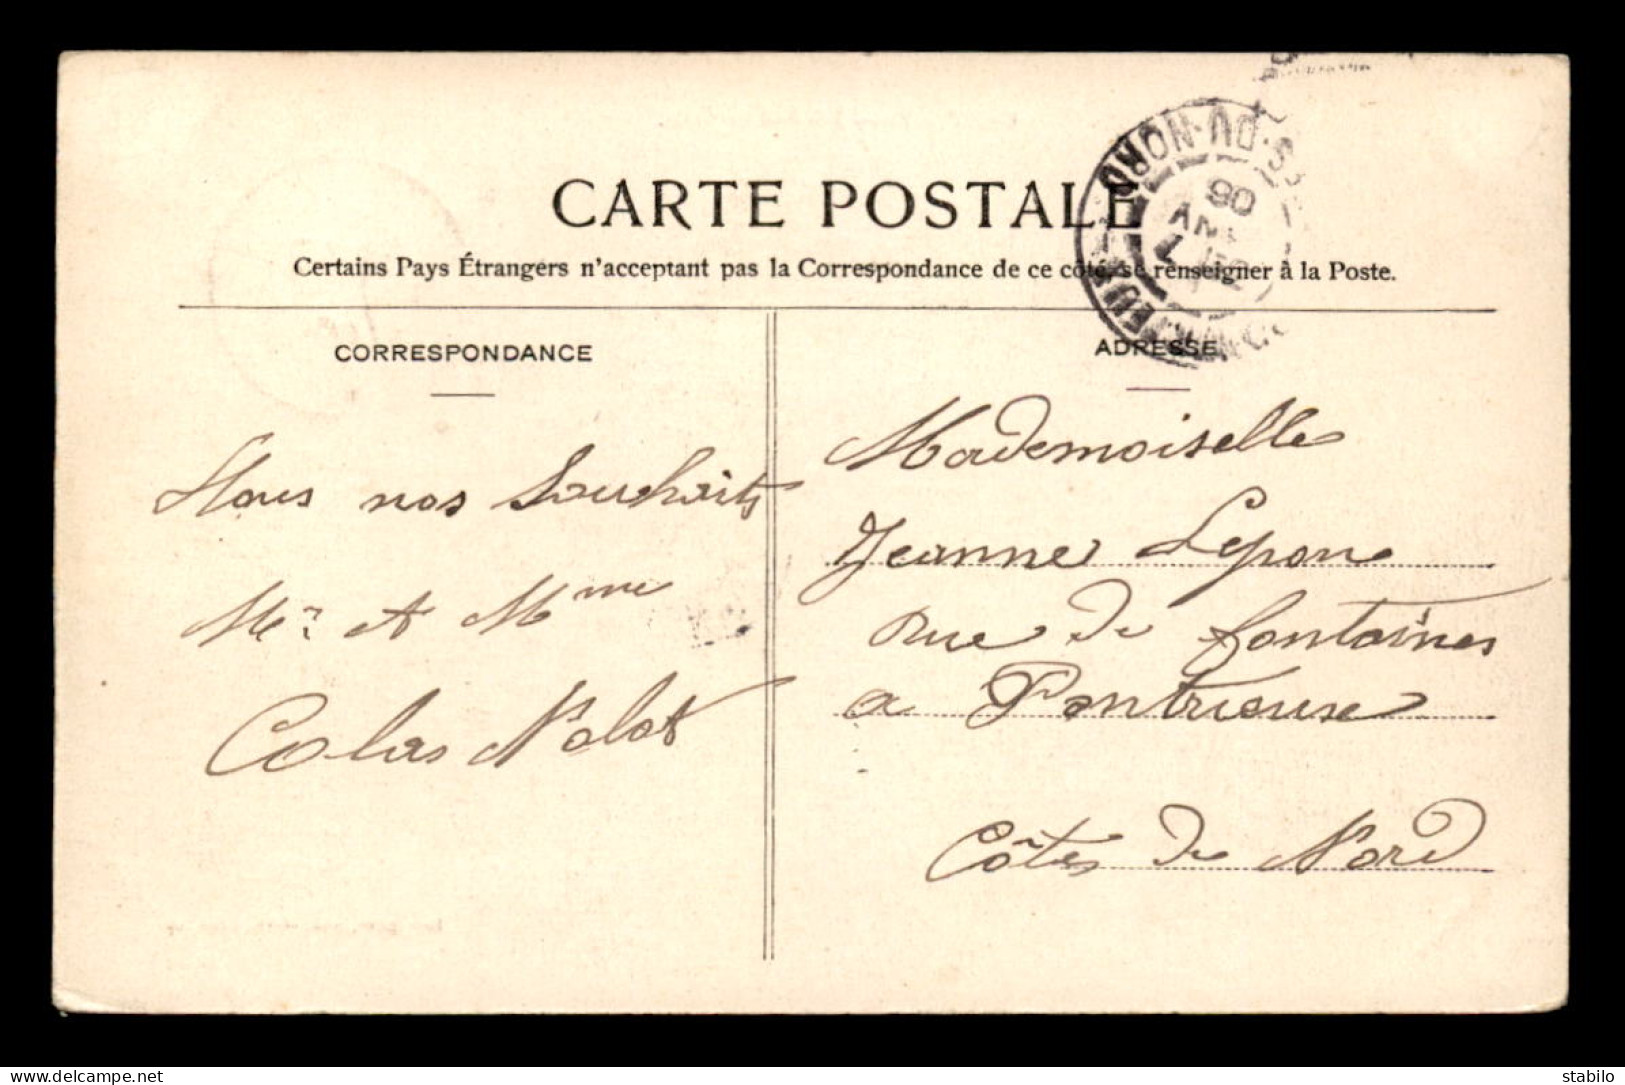 CARTE POSTALE
Certains Pays Étrangers n'acceptant pas la Correspondance de ce côté, se renseigner à la Poste.
CORRESPONDANCE
nos Souhaits
Mr et Mme
Colas Nolot
ADRESSE
Mademoiselle
Jeanne
Rue de fontaines
a Pontrieuse
Côtes du Nord
S-DU-NORD
06
delcampe.net
stabilo